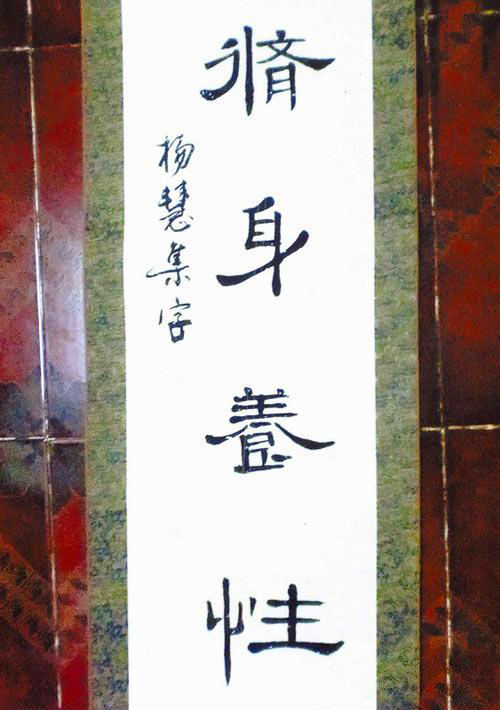 脩身養性
楊慧集字